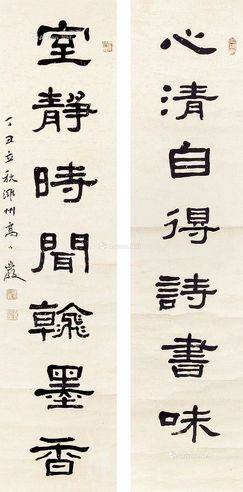 心清自得詩書味
室靜時聞翰墨香
丁丑立秋濰州高小巖